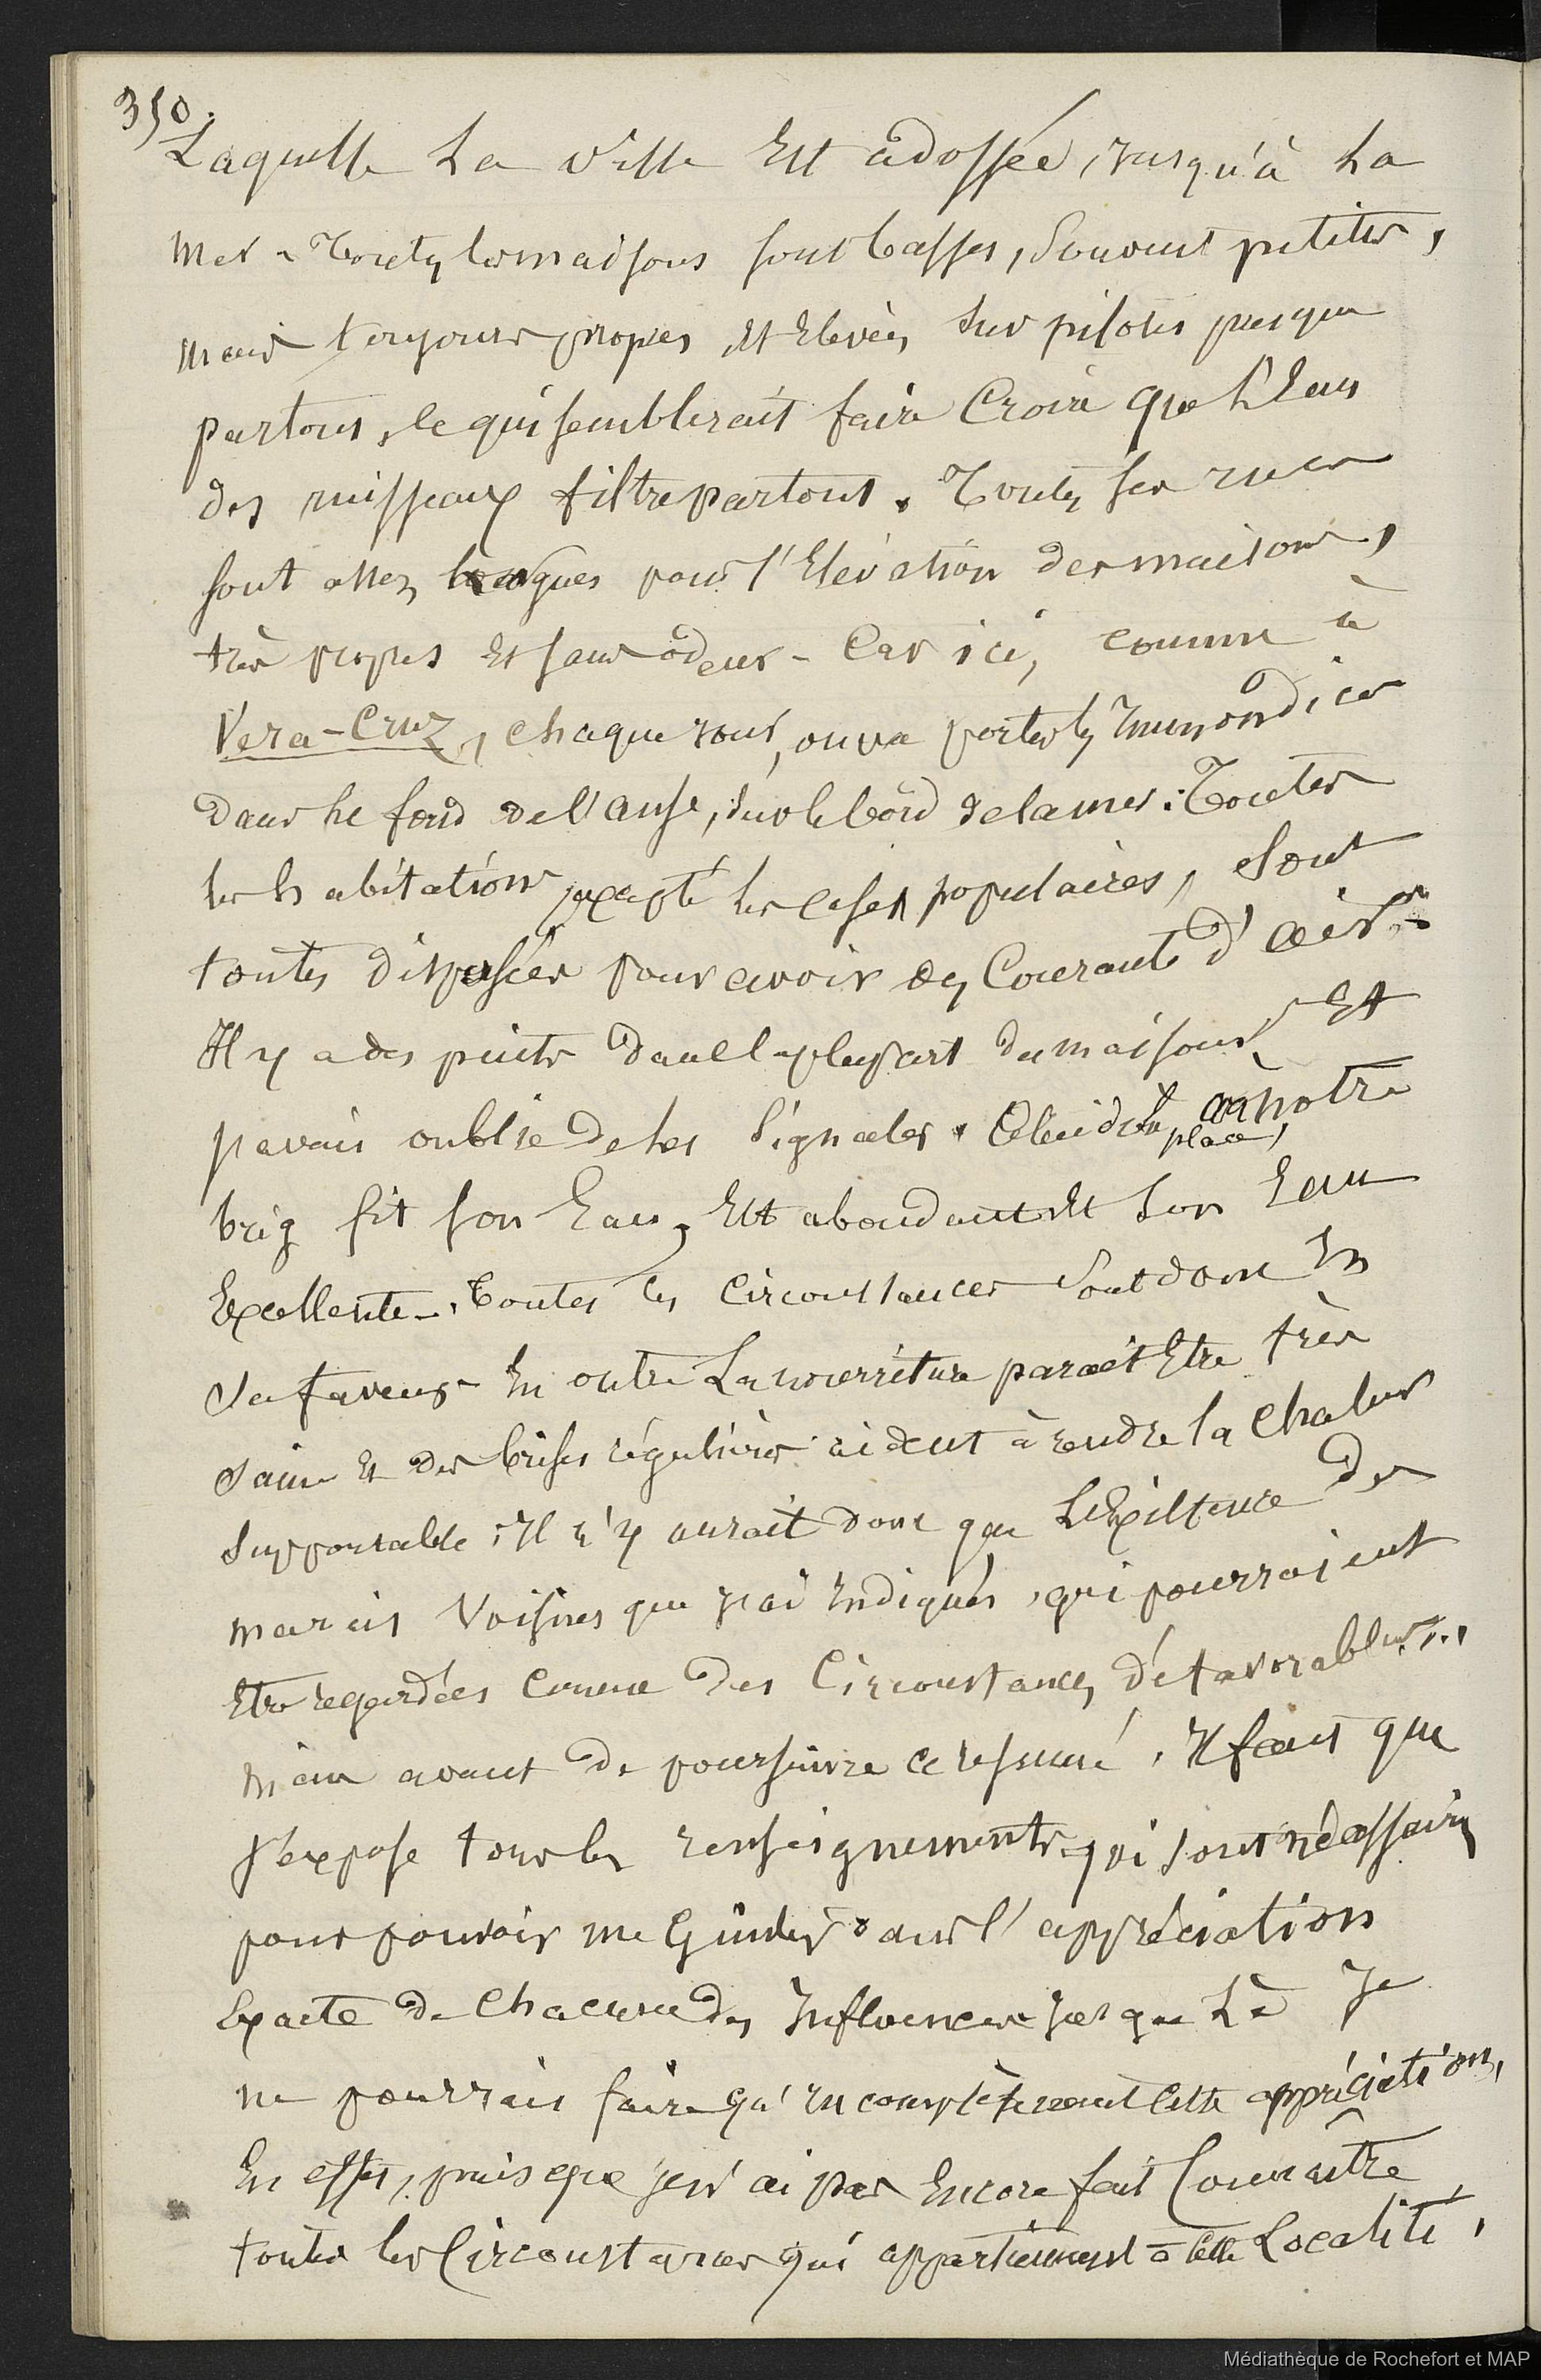 350.
Laquelle la ville Est adossée, jusqu'à la
mer - Toutes les maisons sont basses, souvent petites,
mais toujours propres, Et Elevées sur pilotis presque
partout, ce qui semblerait faire Croire que l'Eau
des ruisseaux filtre partout. Toutes ses rues
sont assez larges pour l'Elévation des maisons,
très propres Et sans odeur - Car ici, comme à
Vera-Cruz, chaque jour, on va porter les Immondices
dans le fond de l'anse, sur le bord de la mer. Toutes
les habitations excepté les cases populaires, sont
toutes disposées pour avoir des Courants d'air -
Il y a des puits dans la plupart des maisons Et
j'avais oublié de les signaler. Celui de la place, où notre
brig fit son Eau, Est abondant Et son Eau
Excellente. Toutes les Circonstances sont donc En
sa faveur - En outre La nourriture parait Etre très
saine Et des brises régulières aident à rendre la chaleur
supportable. Il n'y aurait donc que L'Existence des
marais Voisins que j'ai Indiqués, qui pourraient
Etre regardées comme des Circonstances défavorables...
mais avant de poursuivre ce resumé, Il faut que
j'expose tous les renseignements qui sont nécessaires
pour pouvoir me Guider dans l'appréciation
Exacte de chacune des Influences jusque Là Je
ne pourrais faire qu'Incomplètement cette appréciation,
En effet, puisque je n'ai pas Encore fait Connaître
toutes les Circonstances qui appartiennent à cette Localité,
Médiathèque de Rochefort et MAP